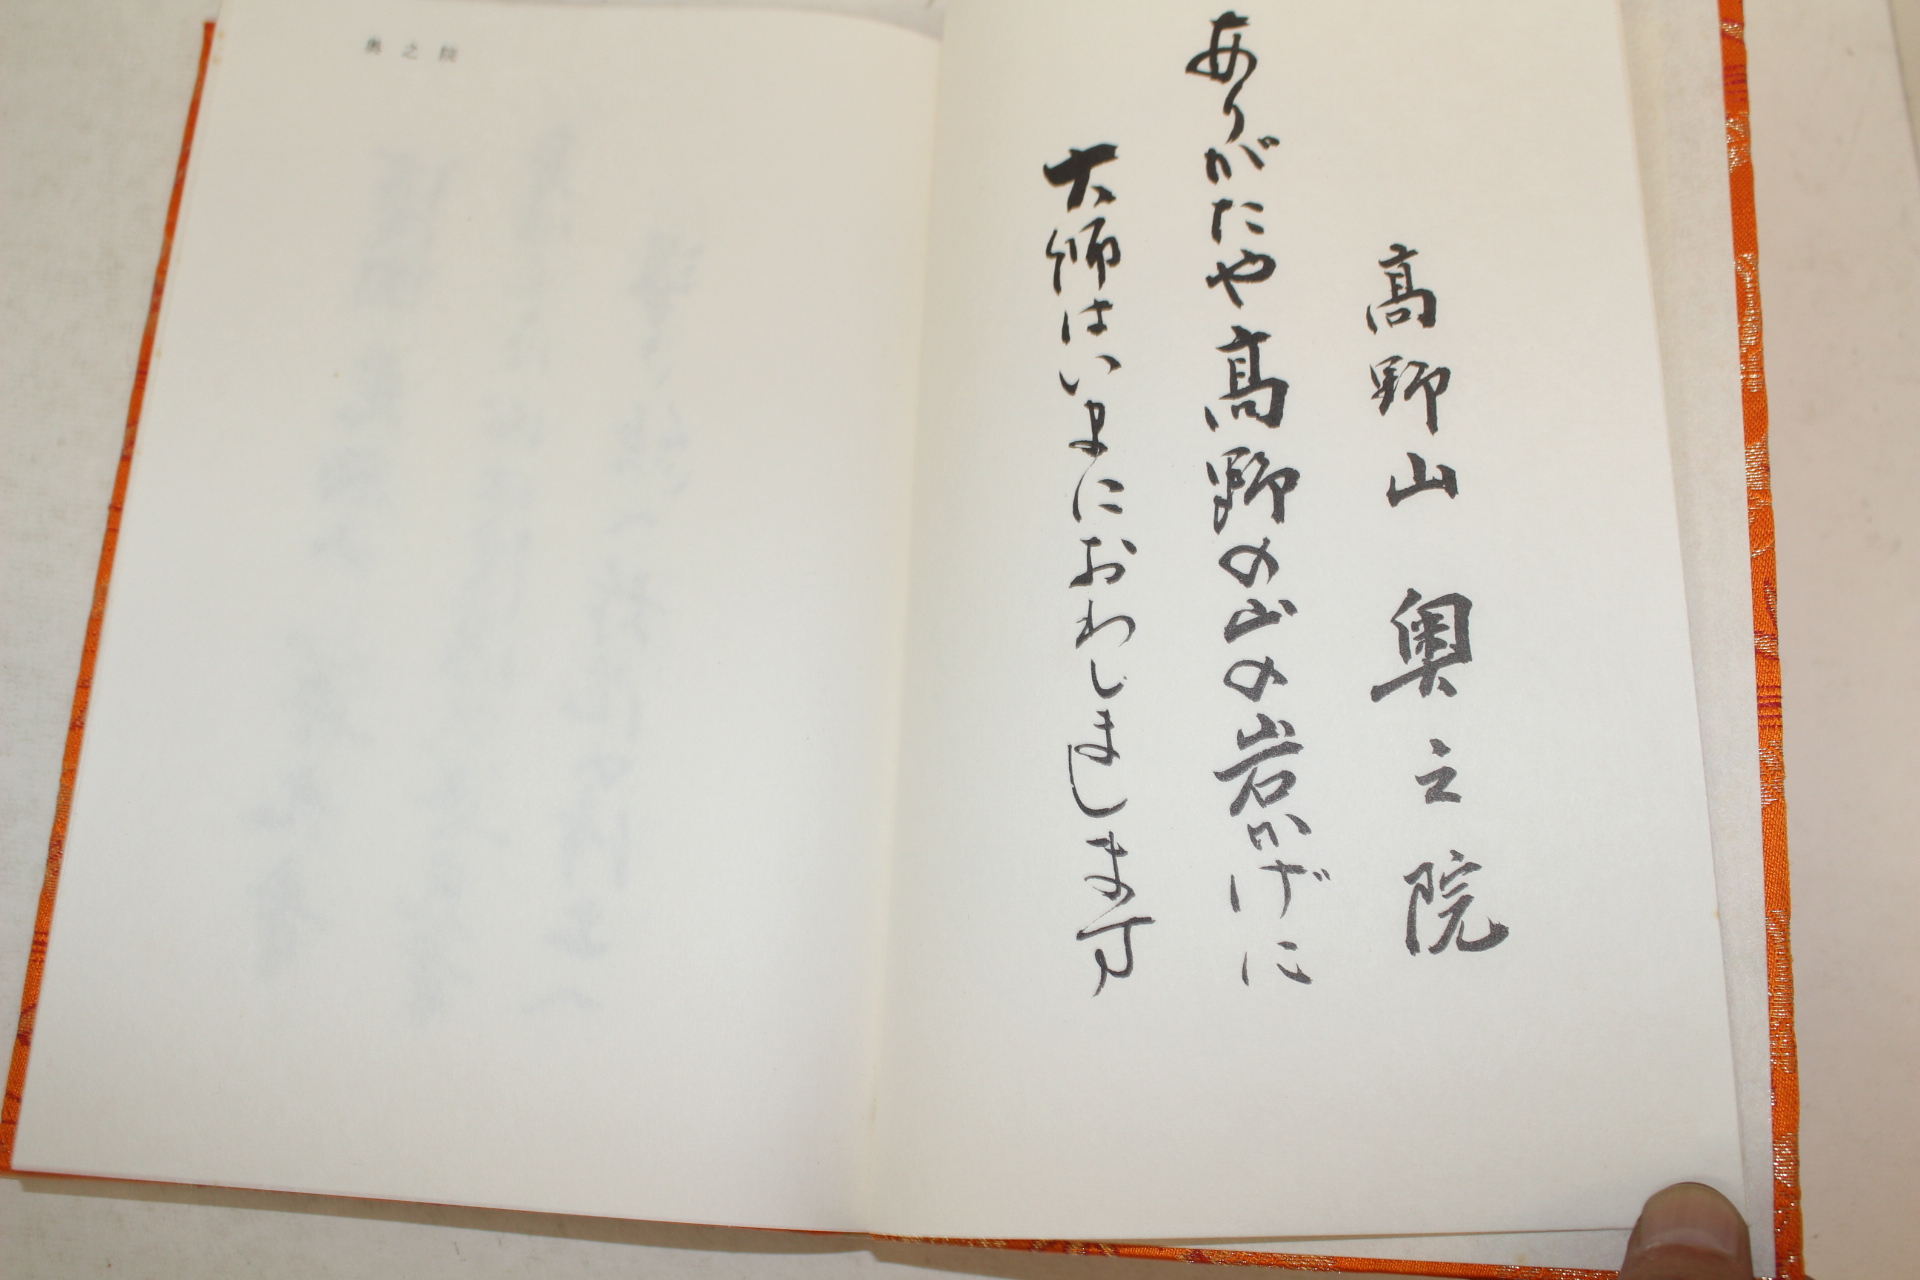 高野山 奥之院
ありがたや高野の山の岩かげに
大師はいまにおわしまします
奥之院